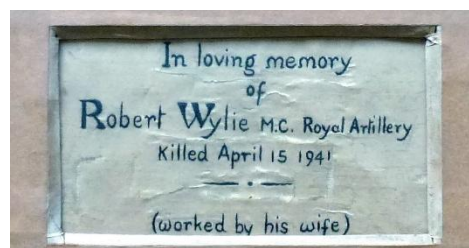 In loving memory
of
Robert Wylie M.C. Royal Artillery
Killed April 15 1941
(worked by his wife)